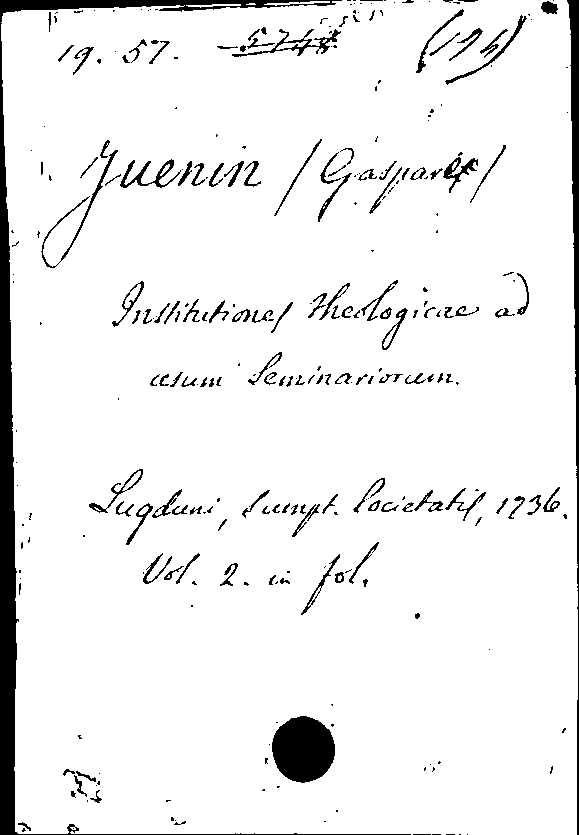 19. 57. 5748 (174)
Juenin / Gasparis /
Institutiones theologicae ad
usum Seminariorum.
Lugduni, Sumpt. Societatis, 1736.
Vol. 2. in fol.